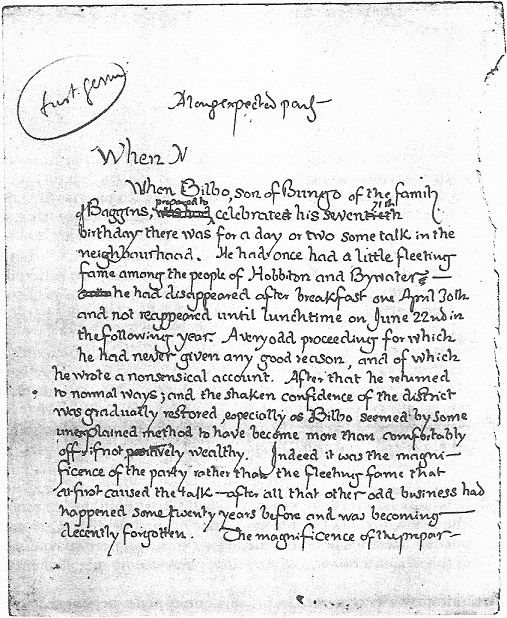 first germ
A long expected party
When N
When Bilbo, son of Bungo of the family
of Baggins, was had prepared to celebrated his seventieth 71th
birthday there was for a day or two some talk in the
neighbourhood. He had once had a little fleeting
fame among the people of Hobbiton and Bywater –
he had disappeared after breakfast one April 30th
and not reappeared until lunchtime on June 22nd in
the following year. A very odd proceeding for which
he had never given any good reason, and of which
he wrote a nonsensical account. After that he returned
to normal ways; and the shaken confidence of the district
was gradually restored, especially as Bilbo seemed by some
unexplained method to have become more than comfortably
off, if not positively wealthy. Indeed it was the magni-
ficence of the party rather than the fleeting fame that
at first caused the talk – after all that other odd business had
happened some twenty years before and was becoming
decently forgotten. The magnificence of the prepar-